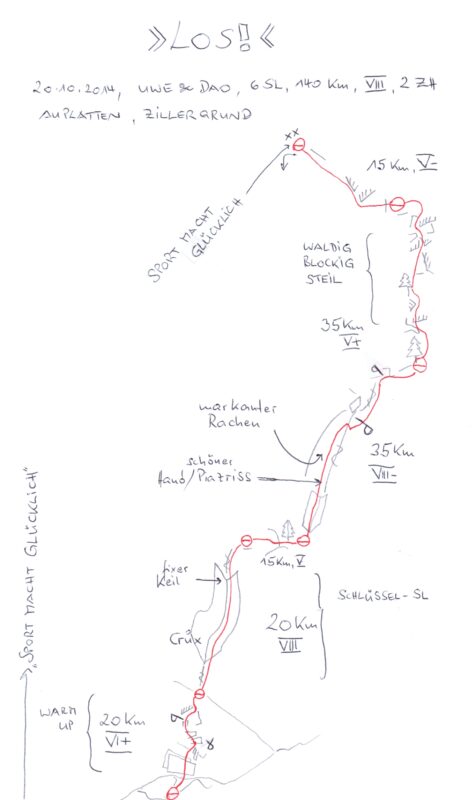 »LOS!«
20.10.2014, UWE & DAO, 6SL, 140 Km, VIII, 2 ZH
AUPLATTEN, ZILLERGRUND
xx
15 Km, V-
SPORT MACHT
GLÜCKLICH
WALDIG
BLOCKIG
STEIL
35 Km
V+
markanter
Rachen
35 Km
VIII-
schöner
Hand/Piazriss
15 Km, V
fixer
Keil
SCHLÜSSEL-SL
20 Km
VIII
Crux
„SPORT MACHT GLÜCKLICH"
WARM
UP
20 Km
VI+